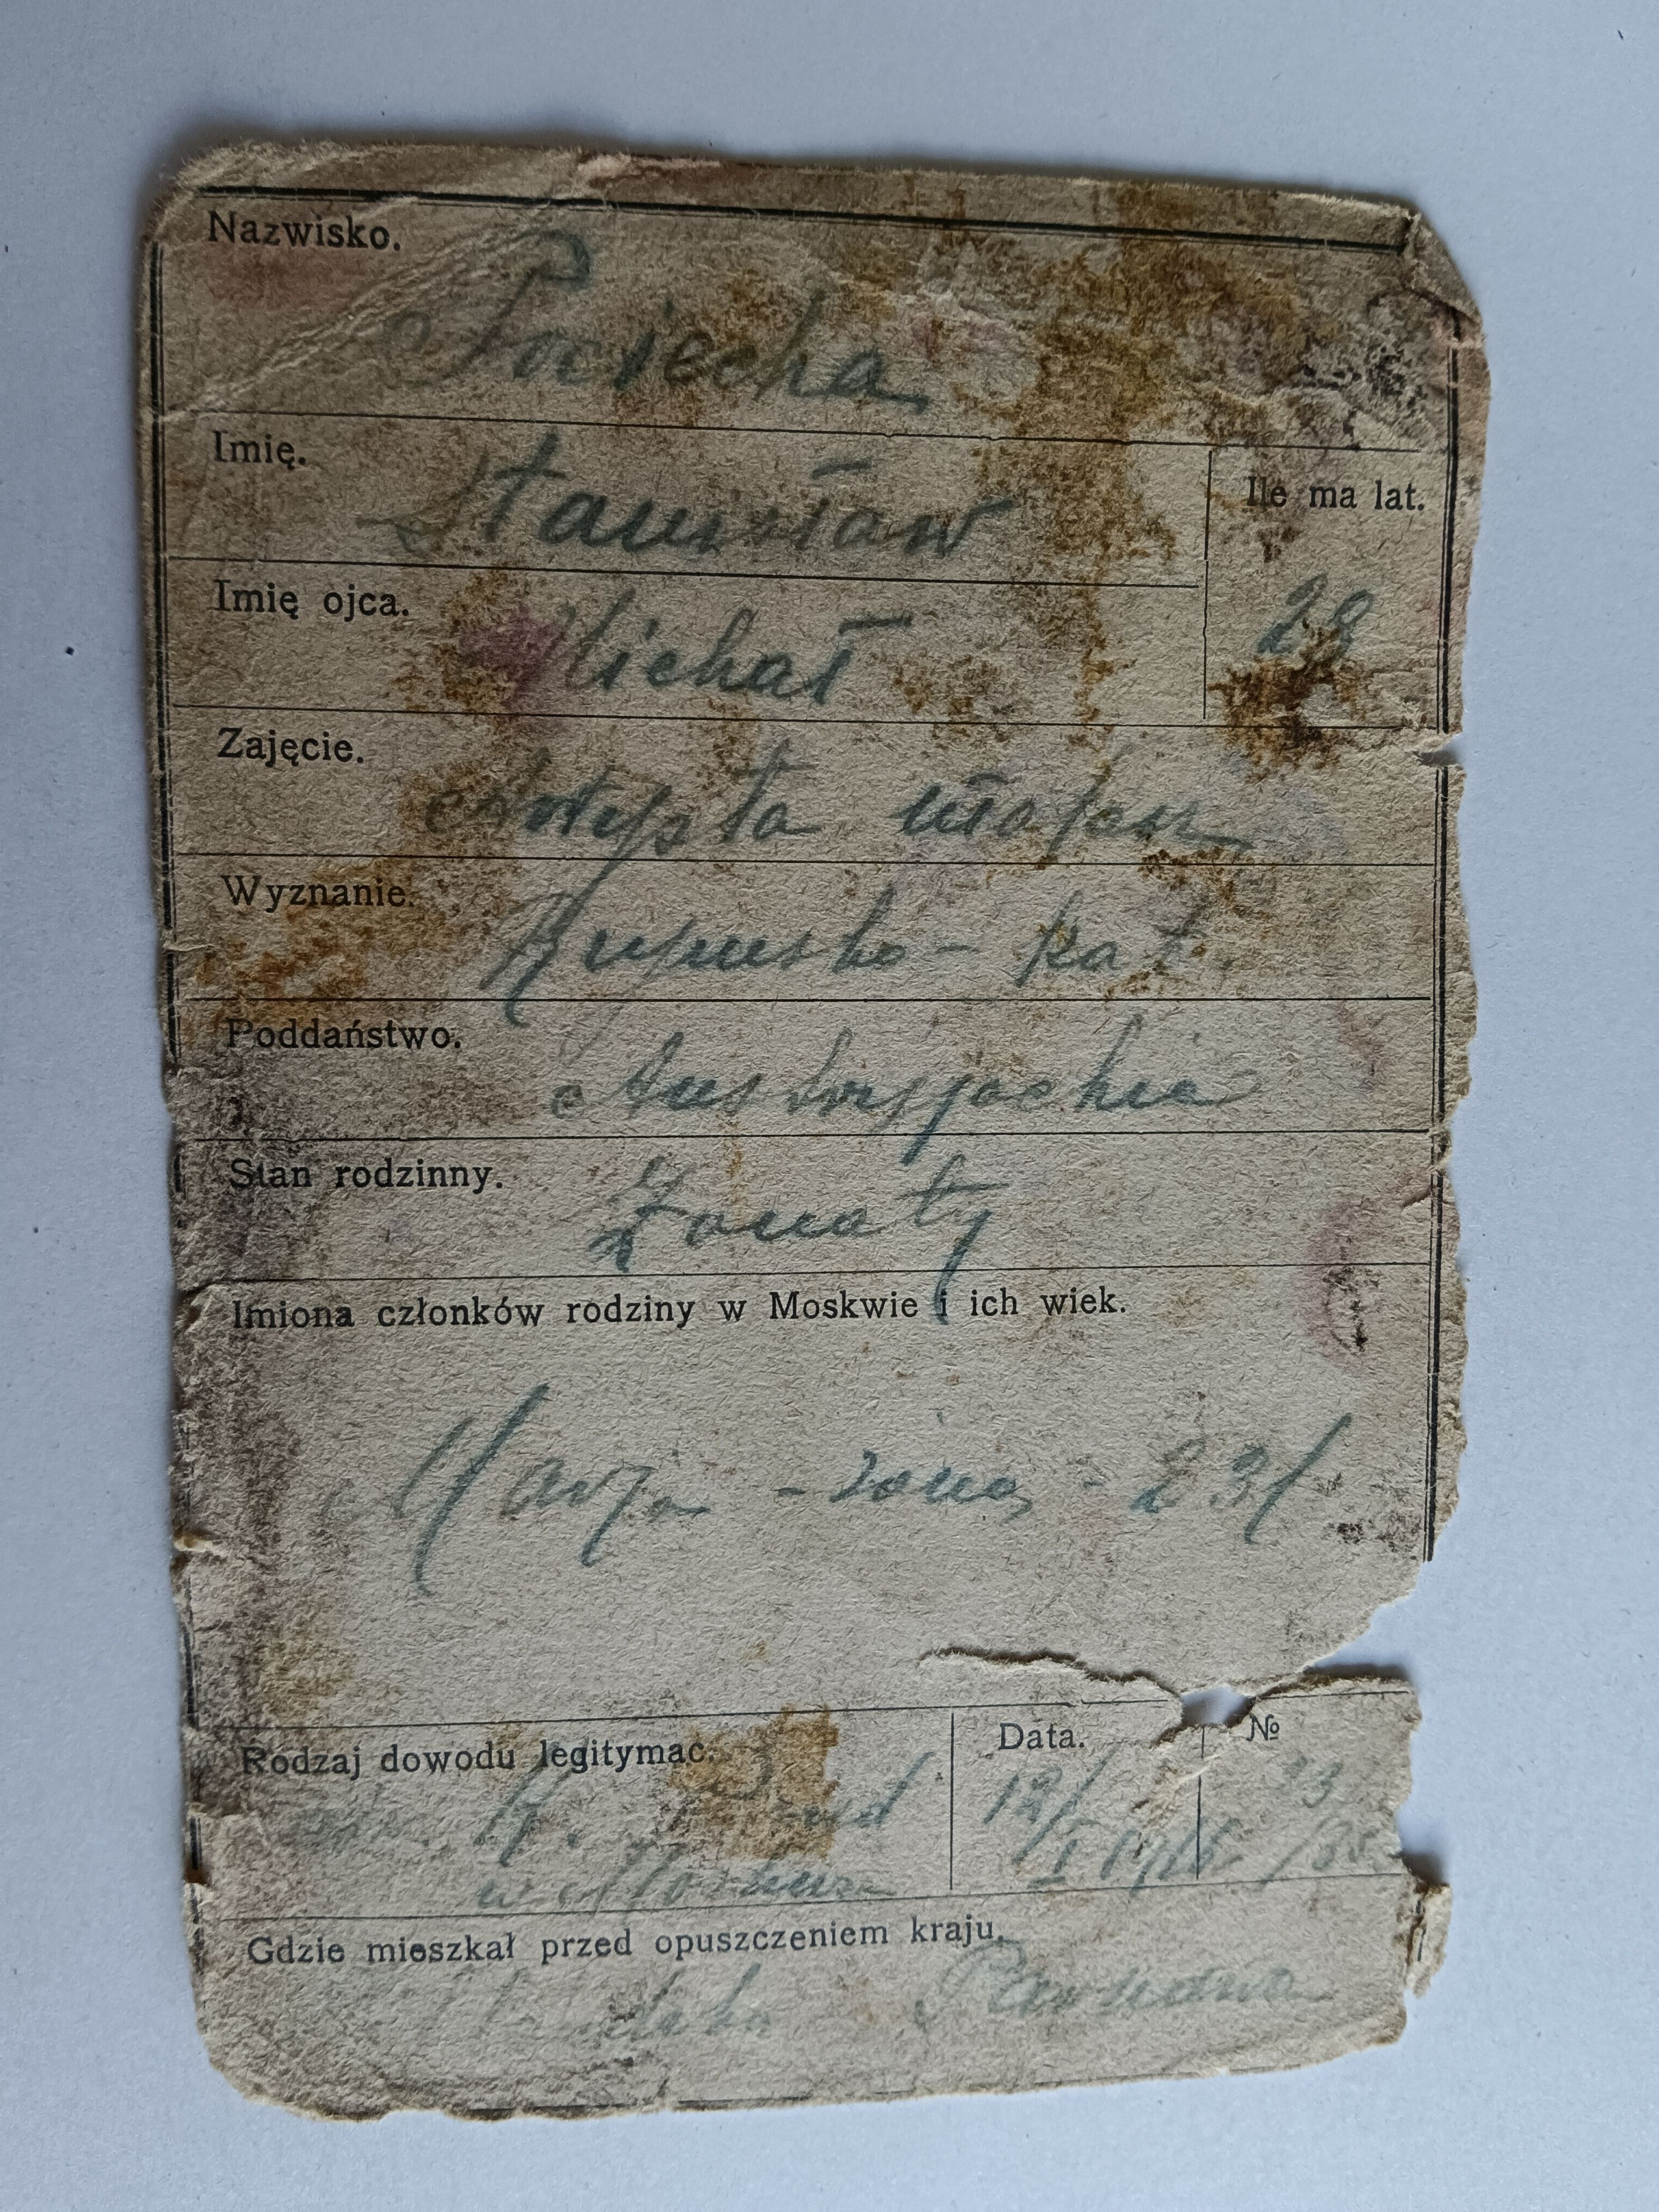 Nazwisko.
Pociecha
Imię.
Stanisław
Ile ma lat.
28
Imię ojca.
Michał
Zajęcie.
Artysta
Wyznanie.
Rzymsko-kat.
Poddaństwo.
Austryjackie
Stan rodzinny.
Żonaty
Imiona członków rodziny w Moskwie i ich wiek.
Marja - żona - 23
Rodzaj dowodu legitymac.
w Moskwie
Data.
12/
I 1915
№
33
Gdzie mieszkał przed opuszczeniem kraju.
Warszawa